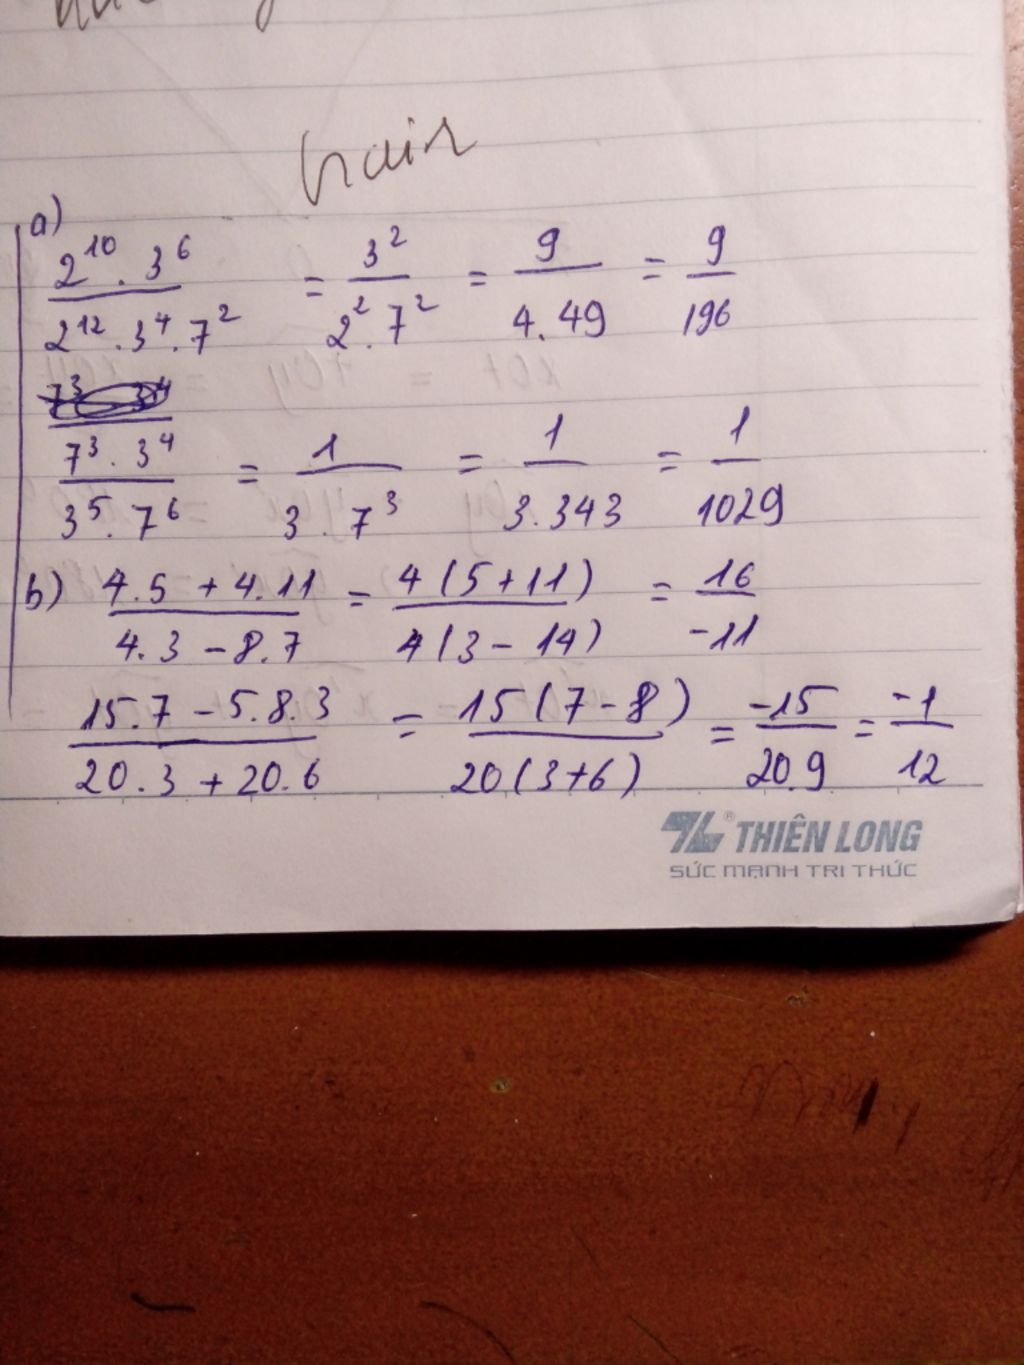 a)
2^10 . 3^6 / 2^12 . 3^4 . 7^2 = 3^2 / 2^2 . 7^2 = 9 / 4.49 = 9 / 196
7^3 . 3^4 / 3^5 . 7^6 = 1 / 3 . 7^3 = 1 / 3.343 = 1 / 1029
b) 4.5 + 4.11 / 4.3 - 8.7 = 4(5+11) / 4(3-14) = 16 / -11
15.7 - 5.8.3 / 20.3 + 20.6 = 15(7-8) / 20(3+6) = -15 / 20.9 = -1 / 12
THIÊN LONG
SỨC MẠNH TRI THỨC